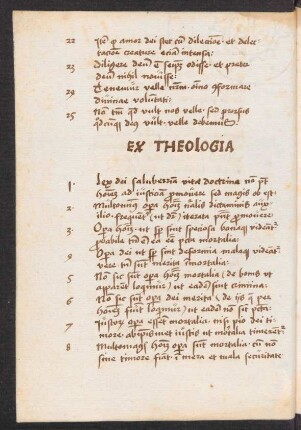 22 Itē q̄ amor dei stet cū dilectiōe · et delec
tatiōe creature eciā intensa :
23 Diligere deū ē seip̄m odisse · et preter
deū nihil nouisse :
24 Tenemur velle nr̄am oīno 9formare
diuine volūtati :
25 Nō tm̄ qd vult nos velle · sed prorsus
qdcūq̢ deus vult velle debemus
EX THEOLOGIA
1 Lex dei saluberima vite doctrina nō pt̄
hoīem ad iusticiā ꝓmouere sed magis ob est :
2 Multominus opa hoīs nalis dictaminis auxi
ilio frequēti (ut dr̄) iterata pn̄t ꝓmouere
3 Opa hoīm · ut sp̄ sint speciosa bonaq̢ videāt
ꝓbabile tn̄ ea ēē pctā mortalia :
4 Opa dei ut sp̄ sint deformia malaq̢ videāt
vere tn̄ sūt merita īmortalia :
5 Nō sic sūt opa hoīm mortalia (de bonis ut
apparēt loqimur) ut eadē sint crimina :
6 Nō sic sūt opa dei merita (de ijs q̄ per
hoīem fiūt loqimur) ut eadē nō sīt pctā :
7 Iustorū opa essēt mortalia · nisi pio dei ti
more · ab ip̄ismet iustis ut mortalia timerēt
8 Multomagis hoīm opa sūt mortalia · cū nō
sine timore fiāt ī mera et mala securitate